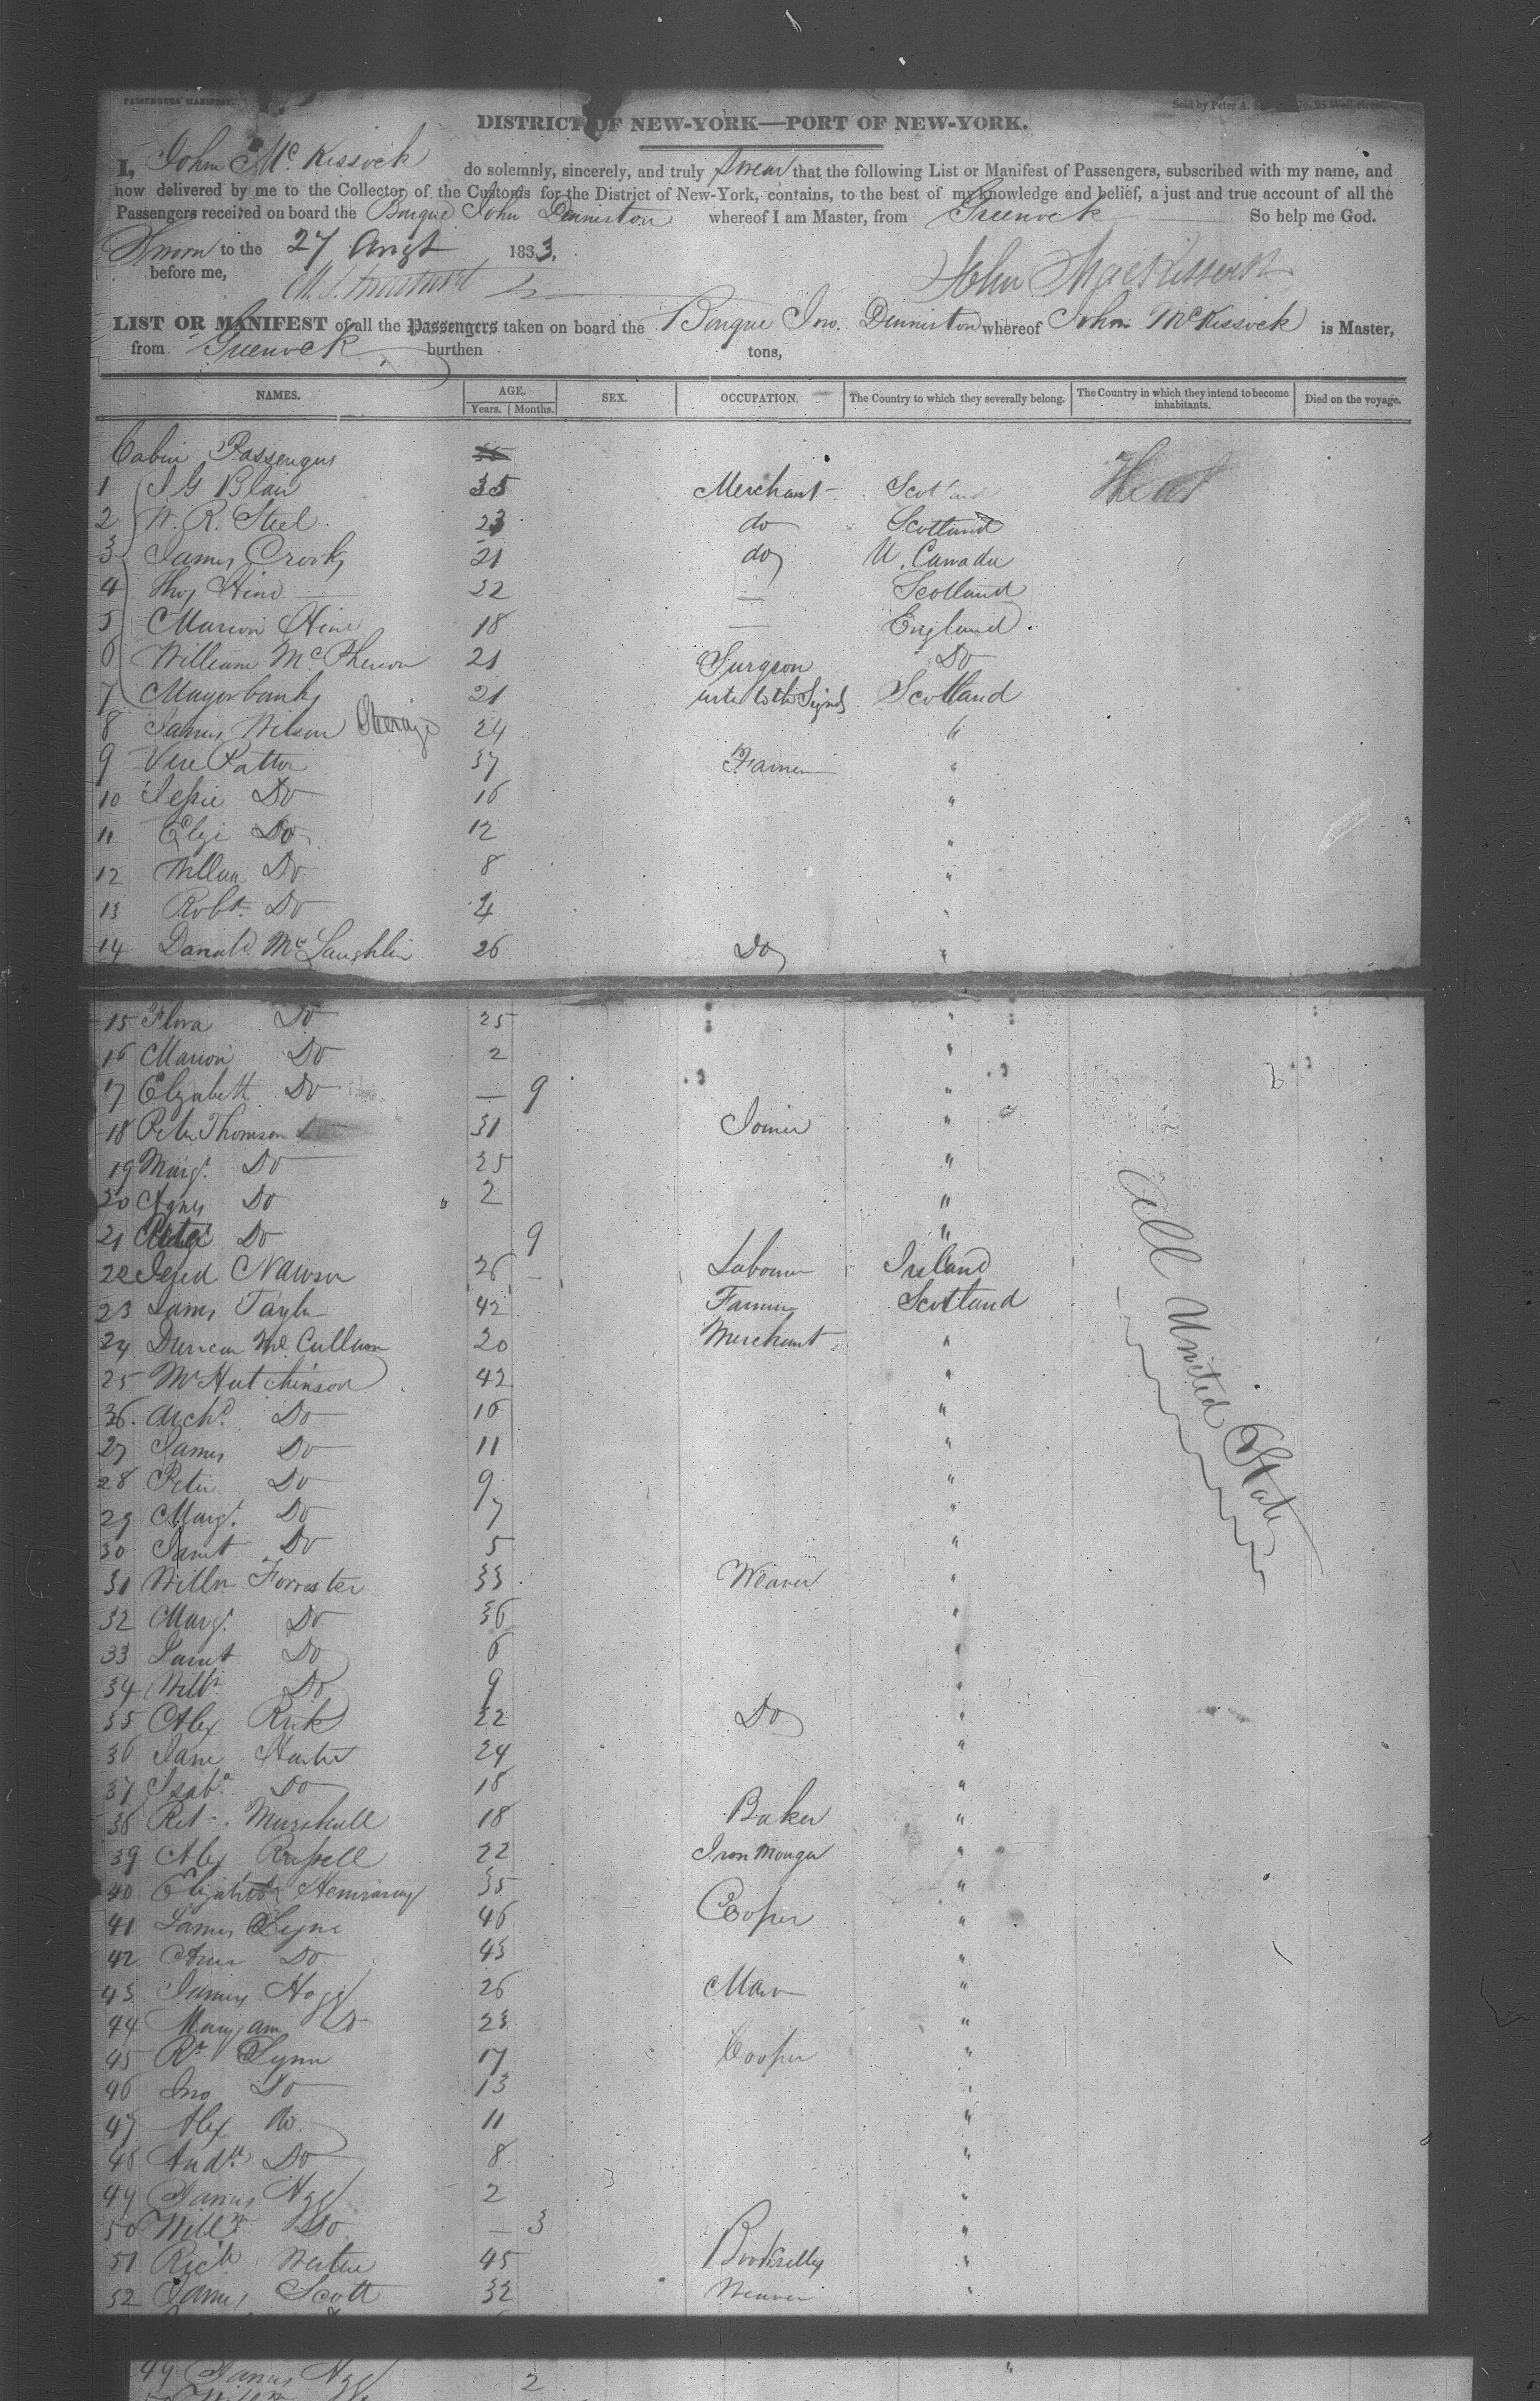 PASSENGERS' MANIFEST.
Sold by Peter A.
DISTRICT OF NEW-YORK—PORT OF NEW-YORK.
I, John Mc. Kissock do solemnly, sincerely, and truly swear that the following List or Manifest of Passengers, subscribed with my name, and
now delivered by me to the Collector of the Customs for the District of New-York, contains, to the best of my knowledge and belief, a just and true account of all the
Passengers received on board the Barque John Denniston whereof I am Master, from Greenock So help me God.
Sworn to the 27 Augt 1833.
before me,
John MacKissock
LIST OR MANIFEST of all the Passengers taken on board the Barque Jno. Denniston whereof John McKissock is Master,
from Greenock burthen tons,
NAMES. AGE. SEX. OCCUPATION. The Country to which they severally belong. The Country in which they intend to become inhabitants. Died on the voyage.
Years. Months.
Cabin Passengers
1 J G Blair 35 Merchant Scotland
2 W. R. Steel 23 do Scotland
3 James Crooks 21 do U. Canada
4 Thos Hine 22 — Scotland
5 Marion Hine 18 — England.
6 William McPherson 21 Surgeon Do
7 Mayorbanks 21 to the Signet Scotland
8 James Wilson Steerage 24 "
9 Patton 37 Farmer "
10 Jessie Do 16 "
11 Eliz Do 12 "
12 William Do 8 "
13 Robt. Do 4 "
14 Donald McLaughlin 26 Do "
15 Flora Do 25 "
16 Marion Do 2 "
17 Elizabeth Do — 9 "
18 Peter Thomson 31 Joiner "
19 Margt. Do 25 "
20 Agnes Do 2 "
21 Do 9 "
22 Nawson 26 – Labourer Ireland
23 James Taylor 42 Farmer Scotland
24 Duncan Mc. Cullum 20 Merchant "
25 Mr Hutchinson 42 "
26. Archd. Do 16 "
27 James Do 11 "
28 Peter Do 9 "
29 Margt. Do 7 "
30 Janet Do 5 "
All United States
31 Willm Forrester 33 Weaver "
32 Margt. Do 36 "
33 Janet Do 6 "
34 Willm Do 9 "
35 Alex Rick 22 Do "
36 Jane Hunter 24 "
37 Isaba Do 18 "
38 Rbt. Marshall 18 Baker "
39 Alex Russell 22 Iron Monger "
40 Elizabeth 35 "
41 James Lyne 46 Cooper "
42 Ann Do 43 "
43 James Hogg 26 "
44 Maryann Do 23 "
45 Rt Lynn 17 Cooper "
46 Jno Do 13 "
47 Alex Do. 11 "
48 Andw. Do 8 "
49 James Hogg 2 "
50 Willm Do. — 3 "
51 Richd 45 Bookseller "
52 James Scott 32 Weaver "
49 James Hogg 2 "